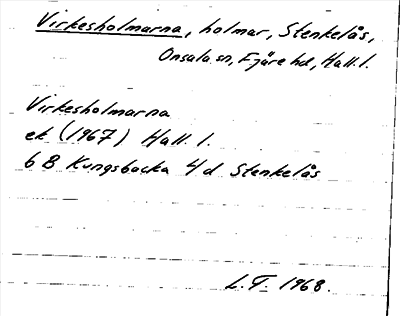 Virkesholmarna, holmar, Stenkelås,
Onsala sn, Fjäre hd, Hall. l.
Virkesholmarna
ek (1967) Hall. l.
6 B Kungsbacka 4 d Stenkelås
L.T. 1968.